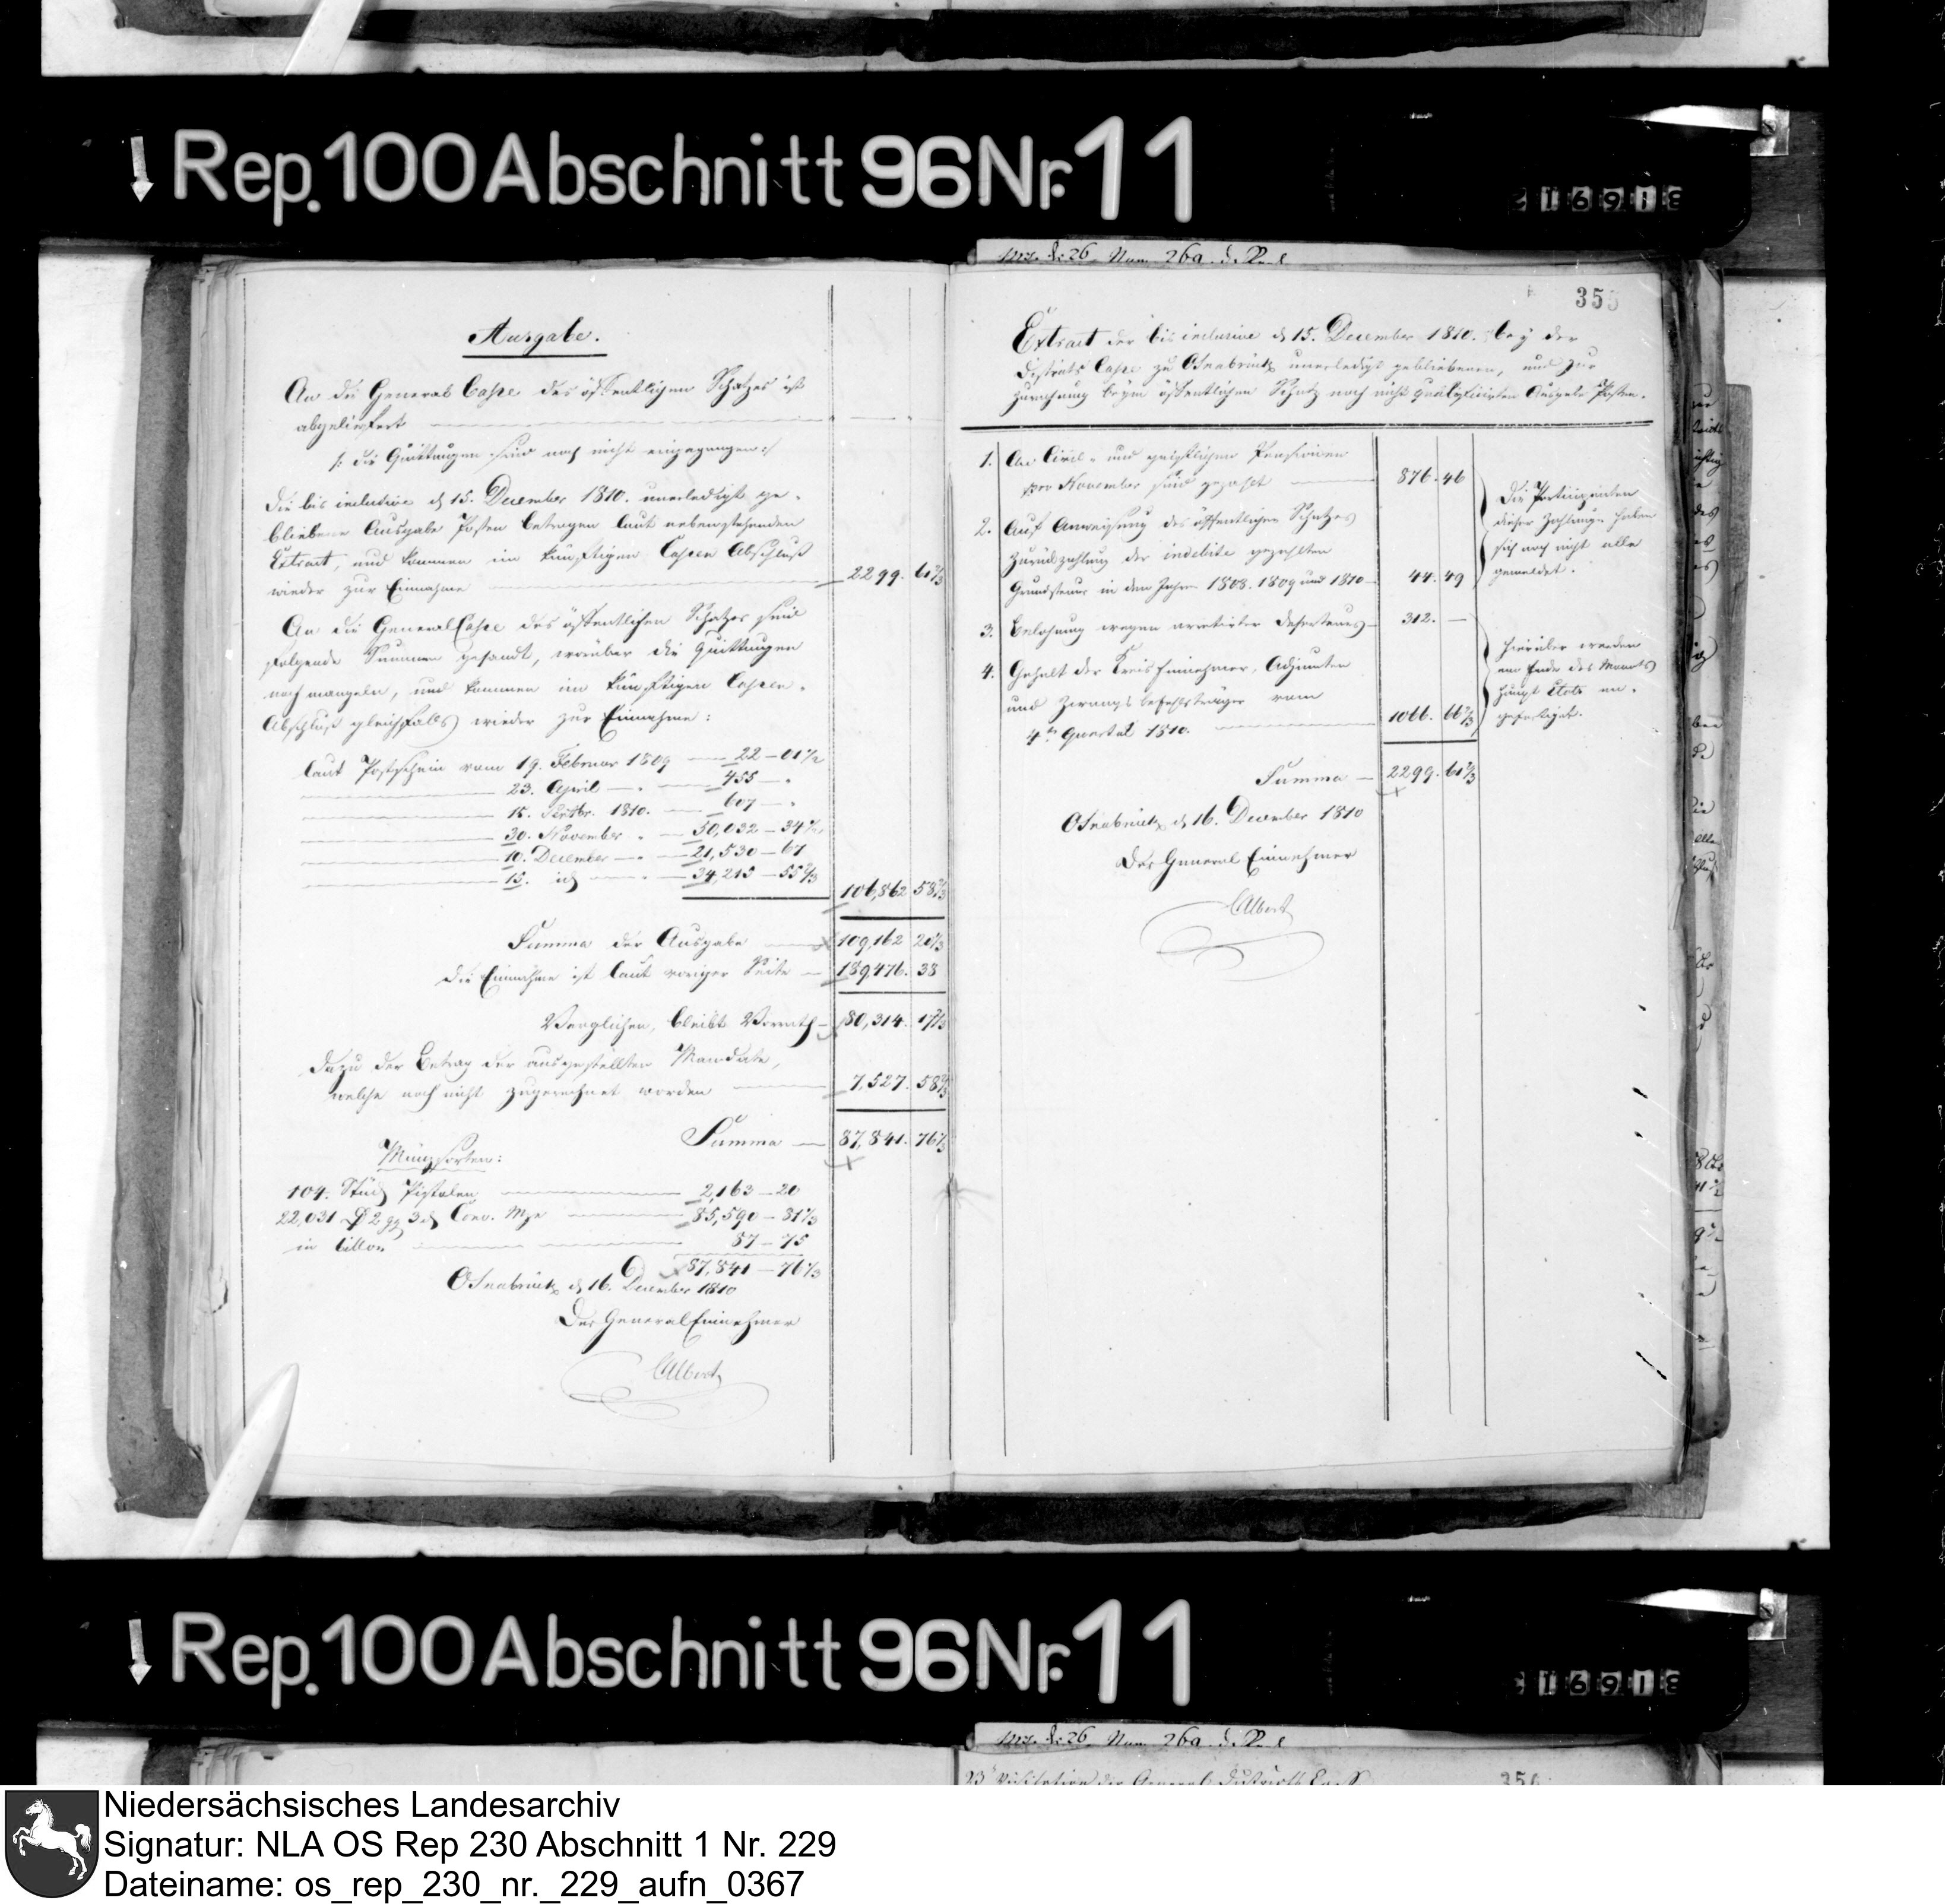 Rep. 100 Abschnitt 96 Nr. 11
216918
355
Ausgabe.
An die General Casse des öffentlichen Schatzes ist
abgeliefert
/: die Quittungen sind noch nicht eingegangen :/
Die bis inclusive d 15. December 1810. unerledigt ge-
bliebene Ausgabe Posten betragen laut nebenstehenden
Extract, und kommen im künftigen Cassen Abschluß
wieder zur Einnahme 2299. 61 2/3
An die General Casse des öffentlichen Schatzes sind
folgende Summen gesandt, worüber die Quittungen
noch mangeln, und kommen im künftigen Cassen-
Abschluß gleichfalls wieder zur Einnahme:
laut Postschein vom 19. Februar 1809 — 22 — 01 1/2
23. April — 455 —
15. Septbr. 1810. — 607 —
30. November — 50,032 — 34
10. December — 21,530 — 67
15. id — 34,215 — 55 2/3
106,862 58 2/3
Summa der Ausgabe — 109,162 20 1/3
Die Einnahme ist laut voriger Seite — 189,476. 38
Verglichen, bleibt Vorrath — 80,314. 17 2/3
Dazu der Betrag der ausgestellten Mandate,
welche noch nicht zugerechnet worden — 7,527. 58 2/3
Summa — 87,841. 76 1/3
Münzsorten:
104. Stück Pistolen — 2,163 — 20
22,031 2 gg 3 d Conv. Mze — 85,590 — 81 1/3
in billon — 87 — 75
87,841 — 76 1/3
Osnabrück d 16. December 1810
Der General Einnehmer
Albert
Extract der bis inclusive d 15. December 1810. bey der
Districts Casse zu Osnabrück unerledigt gebliebenen, und zur
Zurechnung beym öffentlichen Schatz noch nicht qualificirten Ausgabe Posten.
1. An Civil- und geistlichen Pensionen
pro November sind gezahlt — 876. 46
2. Auf Anweisung des öffentlichen Schatzes
Zurückzahlung der indebite gezahlten
Grundsteuer in den Jahren 1808. 1809 und 1810 — 44. 49
Die Percipienten
dieser Zahlung haben
sich noch nicht alle
gemeldet.
3. Belohnung wegen arretirter Deserteurs — 312. —
4. Gehalt der Kreis Einnehmer, Adjuncten
und Zwangsbefehlsträger vom
4ten Quartal 1810. — 1066. 66 2/3
Hierüber werden
am Ende des Monats
Etats an-
gefertigt.
Summa — 2299. 61 2/3
Osnabrück d 16. December 1810
Der General Einnehmer
Albert
Rep. 100 Abschnitt 96 Nr. 11
216918
356
Niedersächsisches Landesarchiv
Signatur: NLA OS Rep 230 Abschnitt 1 Nr. 229
Dateiname: os_rep_230_nr._229_aufn_0367